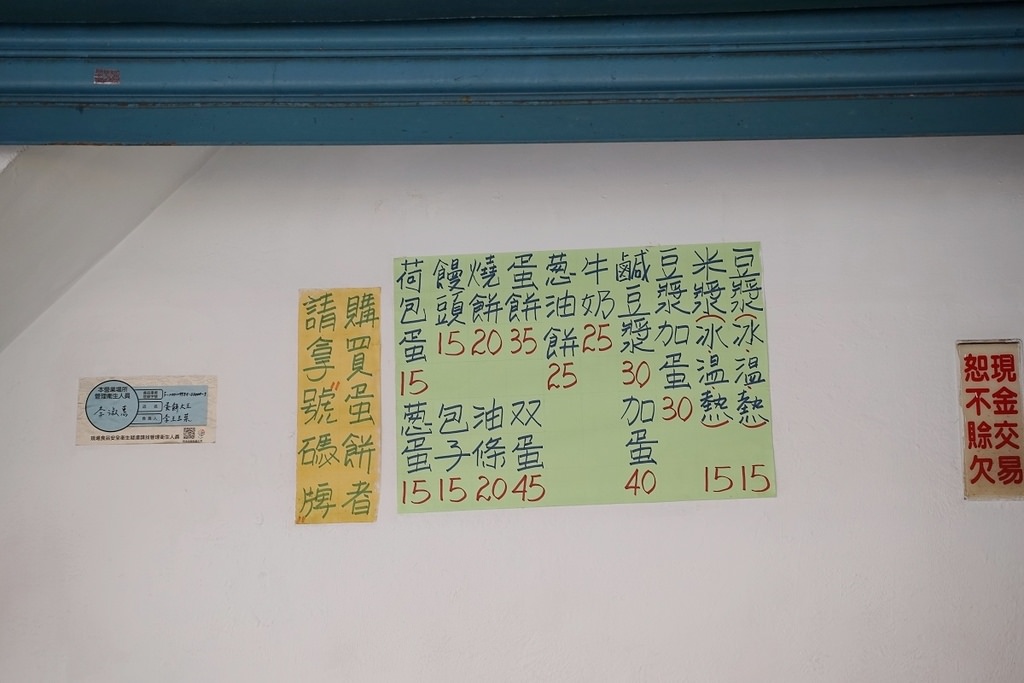 豆漿(冰、溫、熱) 15
米漿(冰、溫、熱) 15
豆漿加蛋 30
鹹豆漿 30
加蛋 40
牛奶 25
葱油餅 25
蛋餅 35
双蛋 45
燒餅 20
油條 20
饅頭 15
包子 15
荷包蛋 15
葱蛋 15
購買蛋餅者
請拿"號碼牌"
現金交易
恕不賒欠
本營業場所
管理衛生人員
李淑惠